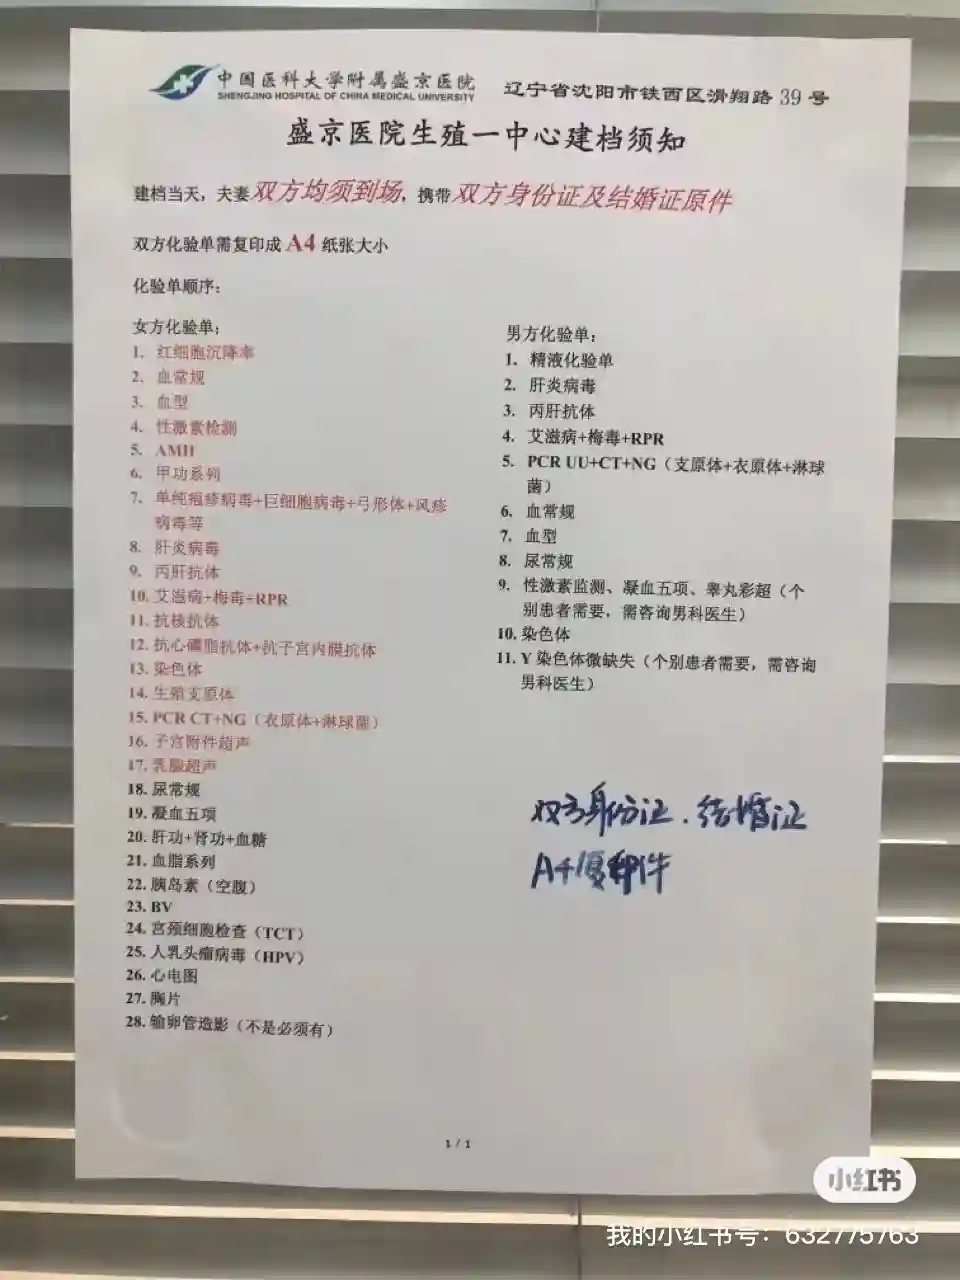 中国医科大学附属盛京医院
SHENGJING HOSPITAL OF CHINA MEDICAL UNIVERSITY
辽宁省沈阳市铁西区滑翔路 39 号
盛京医院生殖一中心建档须知
建档当天，夫妻双方均须到场，携带双方身份证及结婚证原件
双方化验单需复印成 A4 纸张大小
化验单顺序：
女方化验单：
1. 红细胞沉降率
2. 血常规
3. 血型
4. 性激素检测
5. AMH
6. 甲功系列
7. 单纯疱疹病毒+巨细胞病毒+弓形体+风疹
病毒等
8. 肝炎病毒
9. 丙肝抗体
10. 艾滋病+梅毒+RPR
11. 抗核抗体
12. 抗心磷脂抗体+抗子宫内膜抗体
13. 染色体
14. 生殖支原体
15. PCR CT+NG（衣原体+淋球菌）
16. 子宫附件超声
17. 乳腺超声
18. 尿常规
19. 凝血五项
20. 肝功+肾功+血糖
21. 血脂系列
22. 胰岛素（空腹）
23. BV
24. 宫颈细胞检查（TCT）
25. 人乳头瘤病毒（HPV）
26. 心电图
27. 胸片
28. 输卵管造影（不是必须有）
男方化验单：
1. 精液化验单
2. 肝炎病毒
3. 丙肝抗体
4. 艾滋病+梅毒+RPR
5. PCR UU+CT+NG（支原体+衣原体+淋球
菌）
6. 血常规
7. 血型
8. 尿常规
9. 性激素监测、凝血五项、睾丸彩超（个
别患者需要，需咨询男科医生）
10. 染色体
11. Y 染色体微缺失（个别患者需要，需咨询
男科医生）
双方身份证、结婚证
A4复印件
1 / 1
小红书
我的小红书号：632775763